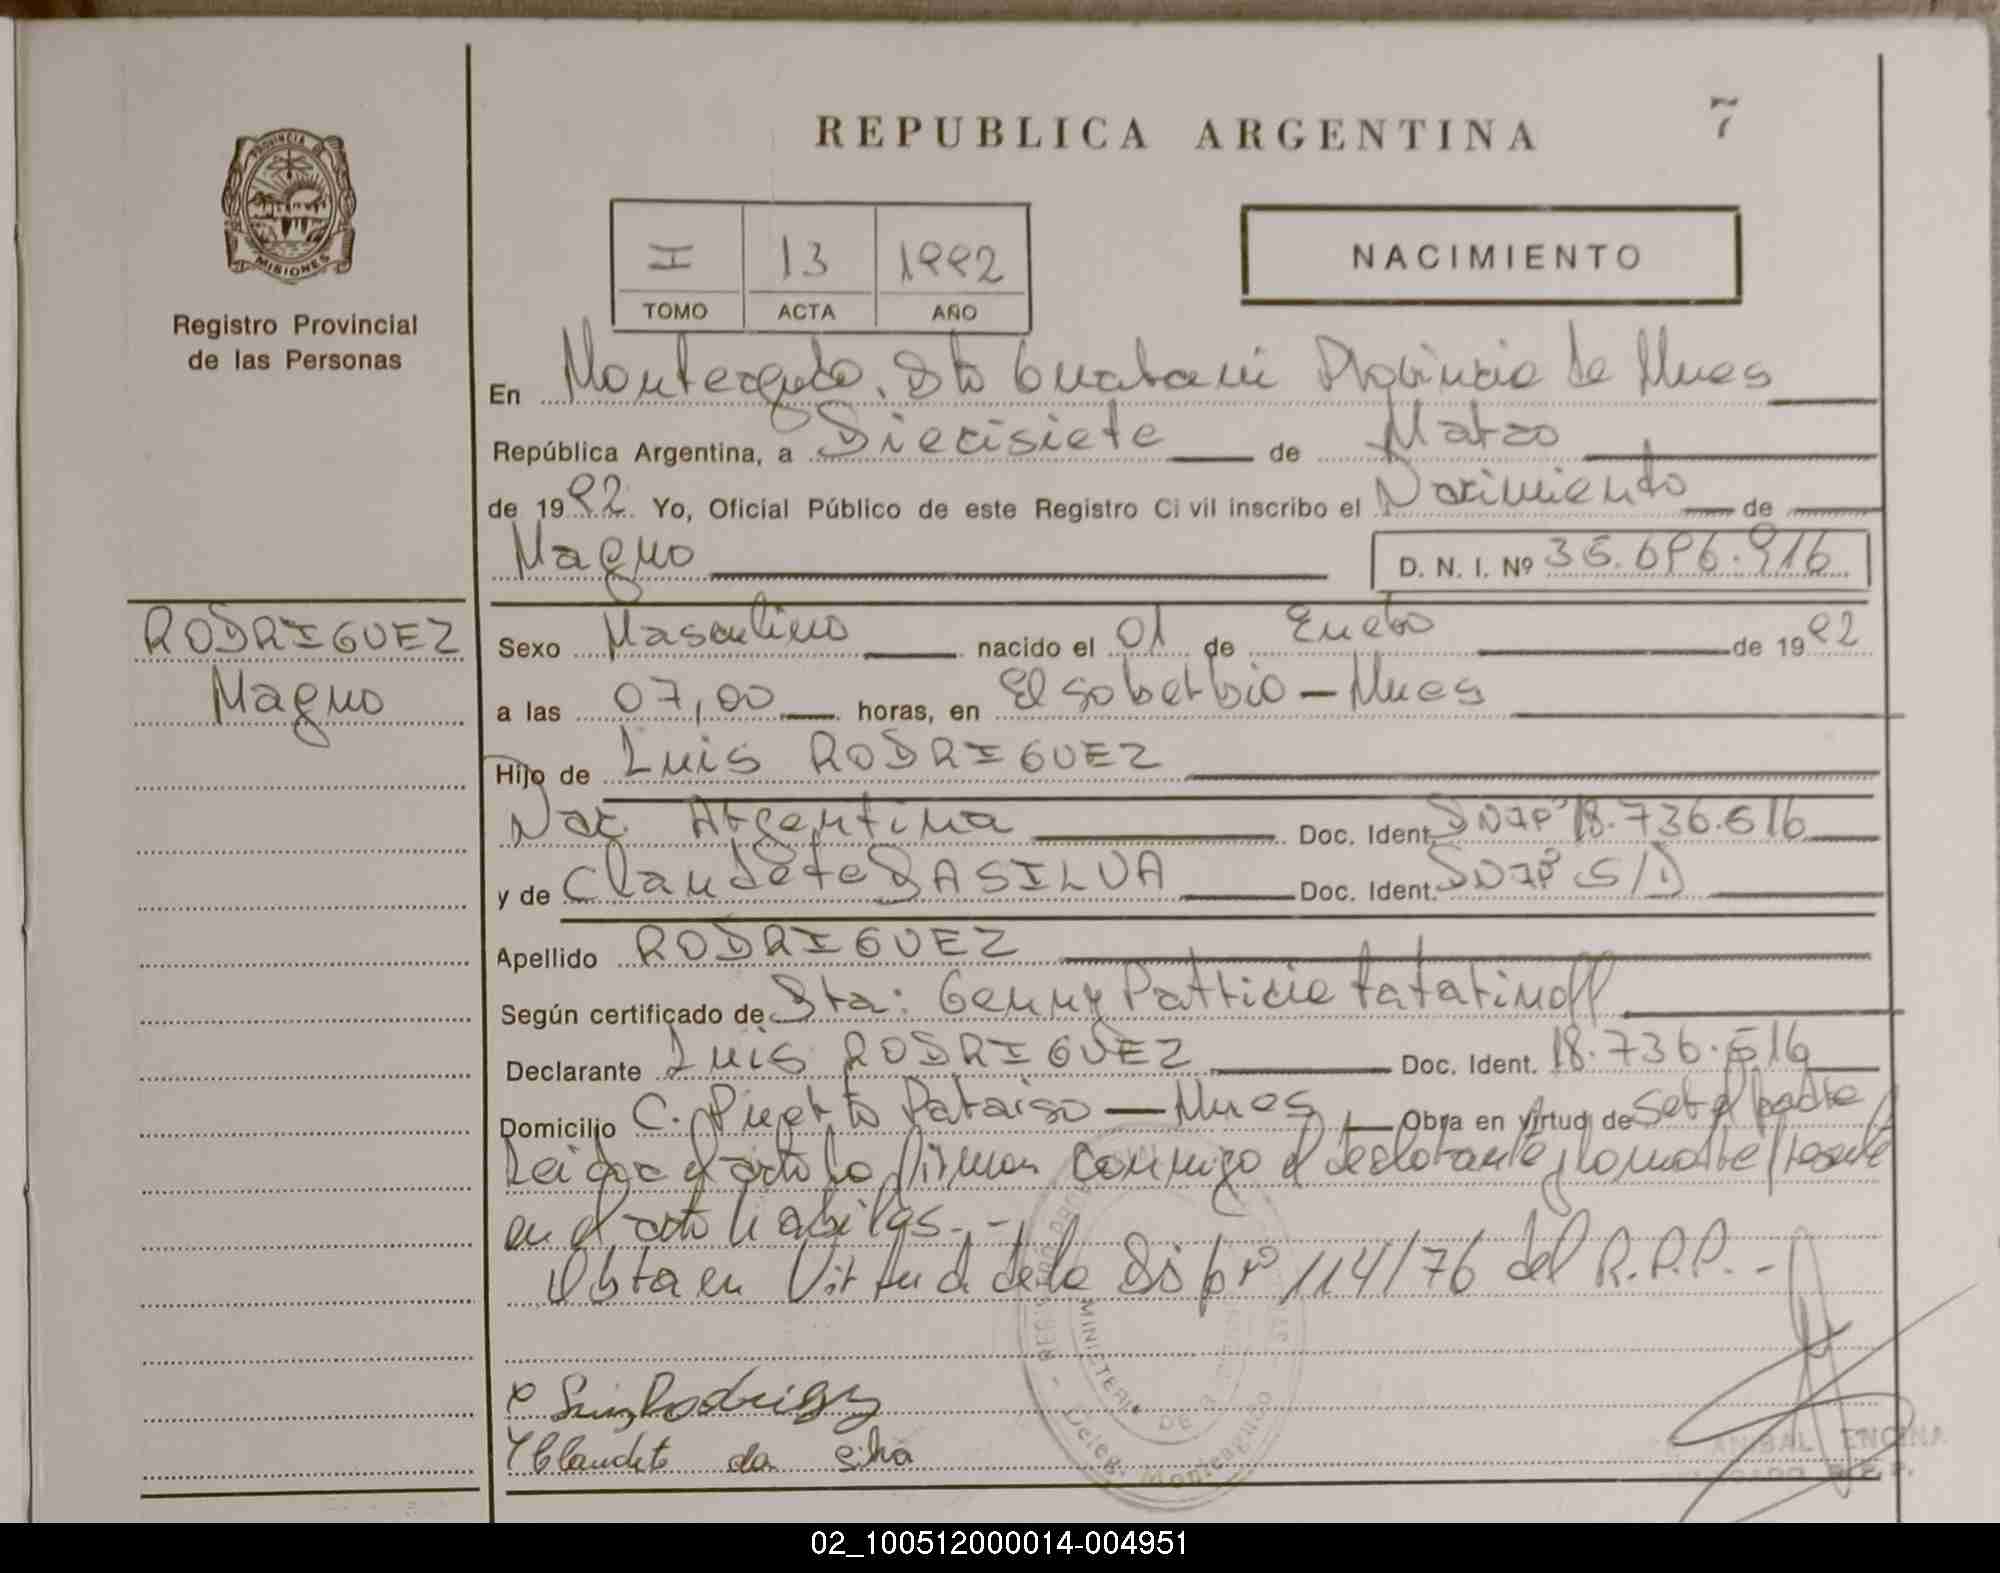 REPUBLICA ARGENTINA
7
PROVINCIA DE
MISIONES
Registro Provincial
de las Personas
I 13 1992
TOMO ACTA AÑO
NACIMIENTO
En Monteagudo, Dto Guarani Provincia de Mnes
República Argentina, a Diecisiete de Marzo
de 1992. Yo, Oficial Público de este Registro Ci vil inscribo el Nacimiento de
Magno D. N. I. Nº 36.696.916
RODRIGUEZ
Magno
Sexo Masculino nacido el 01 de Enero de 1992
a las 07,00 horas, en El soberbio - Mnes
Hijo de Luis RODRIGUEZ
Nac. Argentina Doc. Ident. 18.736.516
y de Claudete DA SILVA Doc. Ident. S/D
Apellido RODRIGUEZ
Según certificado de Sta: Genny Patricia Tatarinoff
Declarante Luis RODRIGUEZ Doc. Ident. 18.736.516
Domicilio C. Puerto Paraiso - Mnes Obra en virtud de ser el padre
Leida el acta la firman conmigo el declarante y la madre presente
en el acto
Obra en Virtud de la Disp nº 114/76 del R.P.P. -
Luis Rodriguez
Claudete da silva
MINISTERIO DE
Deleg. Monteagudo
ANIBAL ENCINA
DELEGADO R.P.P.
02_100512000014-004951